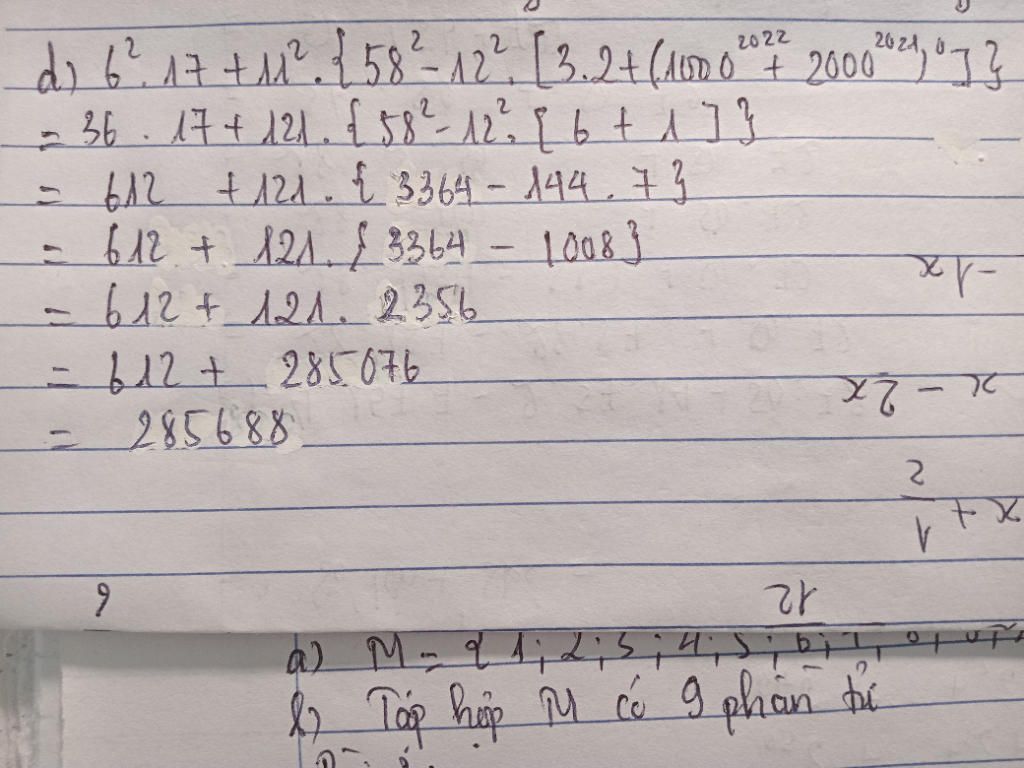 d) 6². 17 + 11². { 58² - 12². [ 3.2 + (1000²⁰²² + 2000²⁰²¹)⁰ ] }
= 36 . 17 + 121. { 58² - 12². [ 6 + 1 ] }
= 612 + 121. { 3364 - 144 . 7 }
= 612 + 121. { 3364 - 1008 }
= 612 + 121. 2356
= 612 + 285076
= 285688
-1x
x - 2x
x + 1/2
12
a) M = { 1; 2; 3; 4; 5; 6; 7;
b) Tập hợp M có 9 phần tử